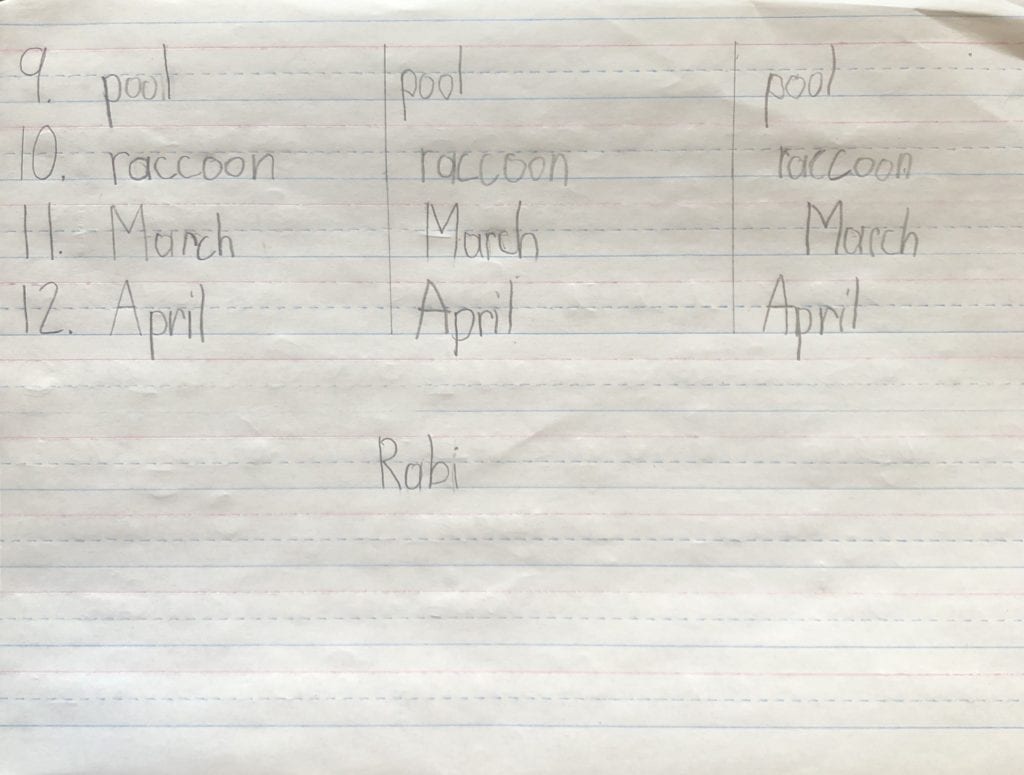 9. pool pool pool
10. raccoon raccoon raccoon
11. March March March
12. April April April
Rabi